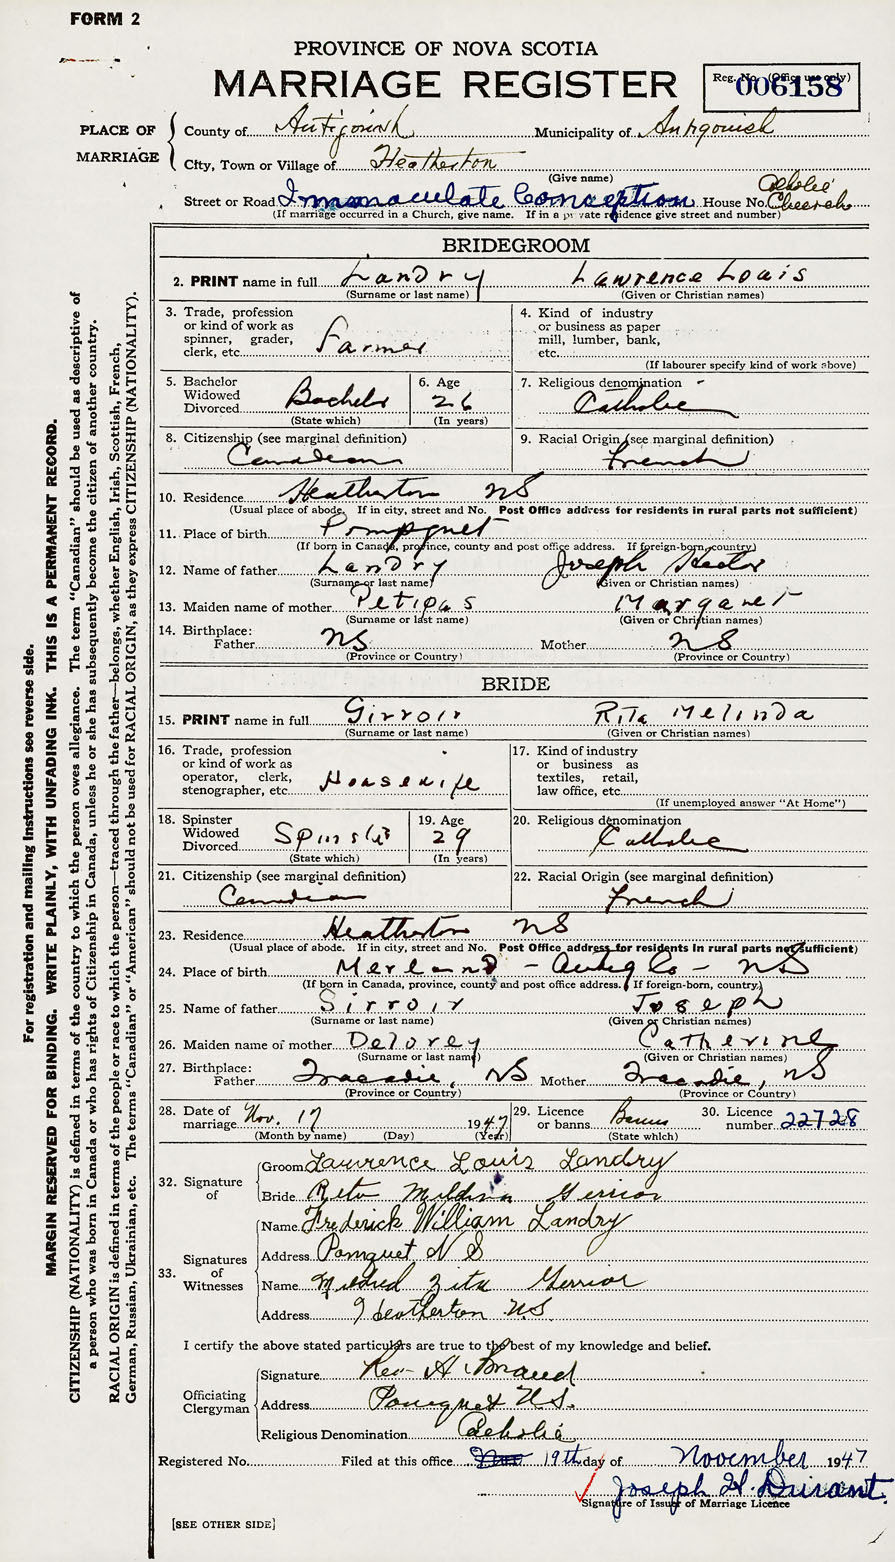 FORM 2
PROVINCE OF NOVA SCOTIA
MARRIAGE REGISTER
Reg. No. (Office use only)
006158
PLACE OF MARRIAGE
County of Antigonish Municipality of Antigonish
City, Town or Village of Heatherton
(Give name)
Street or Road Immaculate Conception House No. Catholic Church
(If marriage occurred in a Church, give name. If in a private residence give street and number)
BRIDEGROOM
2. PRINT name in full Landry Lawrence Louis
(Surname or last name) (Given or Christian names)
3. Trade, profession or kind of work as spinner, grader, clerk, etc. Farmer
4. Kind of industry or business as paper mill, lumber, bank, etc.
(If labourer specify kind of work above)
5. Bachelor Widowed Divorced Bachelor
(State which)
6. Age 26
(In years)
7. Religious denomination Catholic
8. Citizenship (see marginal definition) Canadian
9. Racial Origin (see marginal definition) French
10. Residence Heatherton NS
(Usual place of abode. If in city, street and No. Post Office address for residents in rural parts not sufficient)
11. Place of birth Pompquet
(If born in Canada, province, county and post office address. If foreign-born, country)
12. Name of father Landry Joseph Hector
(Surname or last name) (Given or Christian names)
13. Maiden name of mother Petipas Margaret
(Surname or last name) (Given or Christian names)
14. Birthplace: Father NS Mother NS
(Province or Country) (Province or Country)
BRIDE
15. PRINT name in full Girroir Rita Melinda
(Surname or last name) (Given or Christian names)
16. Trade, profession or kind of work as operator, clerk, stenographer, etc. Housewife
17. Kind of industry or business as textiles, retail, law office, etc.
(If unemployed answer "At Home")
18. Spinster Widowed Divorced Spinster
(State which)
19. Age 29
(In years)
20. Religious denomination Catholic
21. Citizenship (see marginal definition) Canadian
22. Racial Origin (see marginal definition) French
23. Residence Heatherton NS
(Usual place of abode. If in city, street and No. Post Office address for residents in rural parts not sufficient)
24. Place of birth Merland - Antig Co - NS
(If born in Canada, province, county and post office address. If foreign-born, country)
25. Name of father Girroir Joseph
(Surname or last name) (Given or Christian names)
26. Maiden name of mother Delorey Catherine
(Surname or last name) (Given or Christian names)
27. Birthplace: Father Tracadie, NS Mother Tracadie, NS
(Province or Country) (Province or Country)
28. Date of marriage Nov. 17 1947
(Month by name) (Day) (Year)
29. Licence or banns Banns
(State which)
30. Licence number 22728
32. Signature of
Groom Lawrence Louis Landry
Bride Rita Meldina Gerrior
33. Signatures of Witnesses
Name Frederick William Landry
Address Pomquet N S
Name Mildred Zita Gerrior
Address Heatherton N.S.
I certify the above stated particulars are true to the best of my knowledge and belief.
Officiating Clergyman
Signature Rev A
Address Pomquet N.S.
Religious Denomination Catholic
Registered No. Filed at this office 19th day of November 1947
Joseph H. Durant
Signature of Issuer of Marriage Licence
[SEE OTHER SIDE]
For registration and mailing instructions see reverse side.
MARGIN RESERVED FOR BINDING. WRITE PLAINLY, WITH UNFADING INK. THIS IS A PERMANENT RECORD.
CITIZENSHIP (NATIONALITY) is defined in terms of the country to which the person owes allegiance. The term "Canadian" should be used as descriptive of
a person who was born in Canada or who has rights of Citizenship in Canada, unless he or she has subsequently become the citizen of another country.
RACIAL ORIGIN is defined in terms of the people or race to which the person—traced through the father—belongs, whether English, Irish, Scottish, French,
German, Russian, Ukrainian, etc. The terms "Canadian" or "American" should not be used for RACIAL ORIGIN, as they express CITIZENSHIP (NATIONALITY).